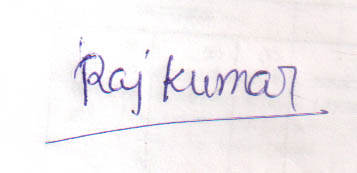 Raj kumar